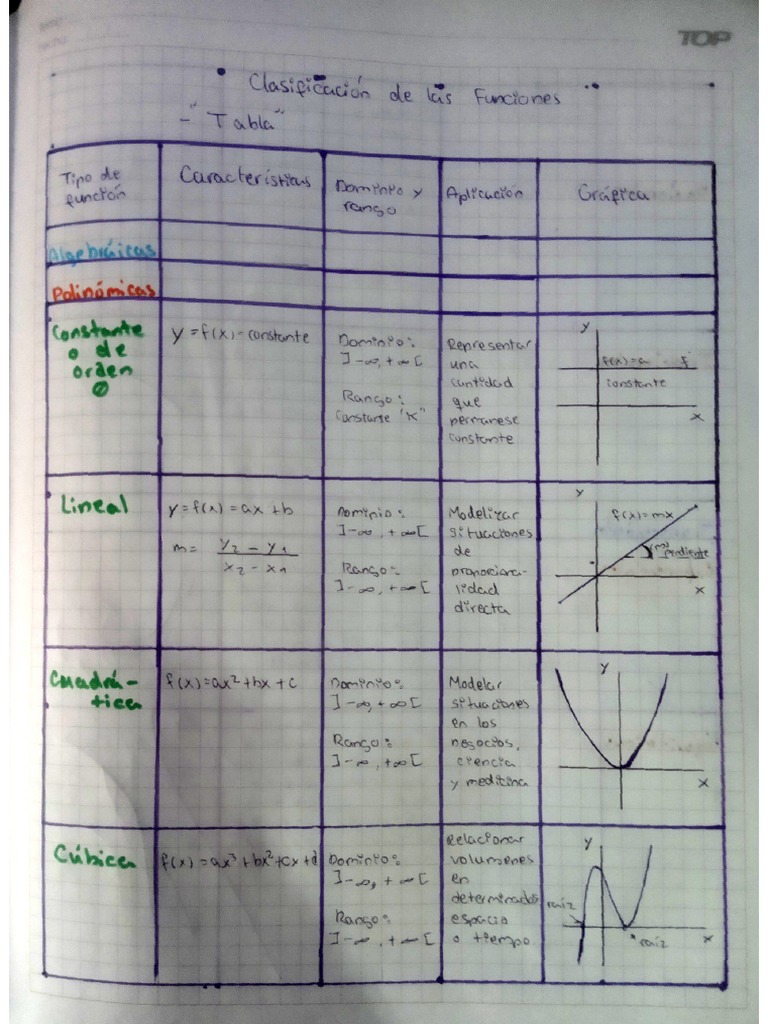 TOP
Clasificación de las Funciones
- "Tabla"
Tipo de
función
Características
Dominio y
rango
Aplicación
Gráfica
Algebráicas
Polinómicas
Constante
o de
orden
y = f(x) = constante
Dominio:
]-∞, +∞[
Rango:
constante "K"
Representar
una
cantidad
que
permanese
constante
y
f(x)=a f
constante
x
Lineal
y = f(x) = ax + b
m = y₂ - y₁
x₂ - x₁
Dominio:
]-∞, +∞[
Rango:
]-∞, +∞[
Modelizar
situaciones
de
proporciona-
lidad
directa
y
f(x)=mx
pendiente
x
Cuadrá-
tica
f(x)=ax²+bx+c
Dominio:
]-∞, +∞[
Rango:
]-∞, +∞[
Modelar
situaciones
en los
negocios,
ciencia
y meditina
y
x
Cúbica
f(x)=ax³+bx²+cx+d
Dominio:
]-∞, +∞[
Rango:
]-∞, +∞[
Relacionar
volumenes
en
determinados
espacio
o tiempo
y
raíz
raíz
x